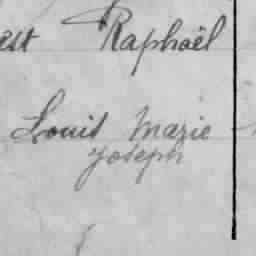 est Raphaël
Louis Marie
Joseph